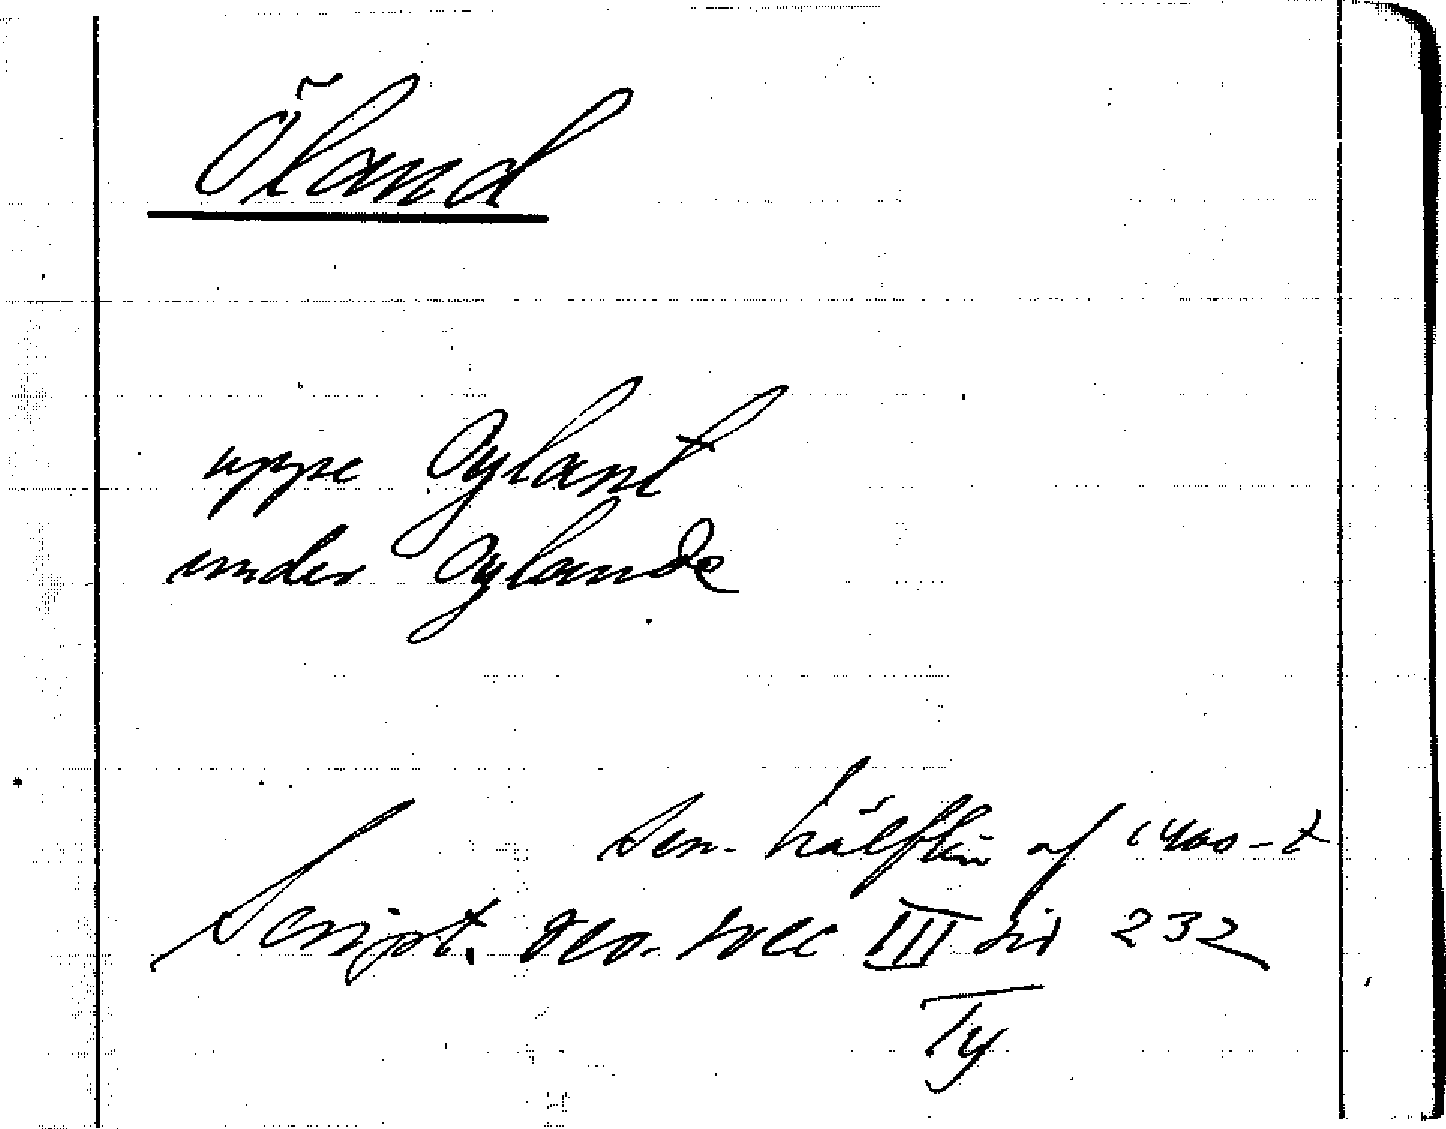 Öland
uppe Oylant
under Oylande
sen. hälften af 1400-t
Script. rer. svec III sid 232
Ty